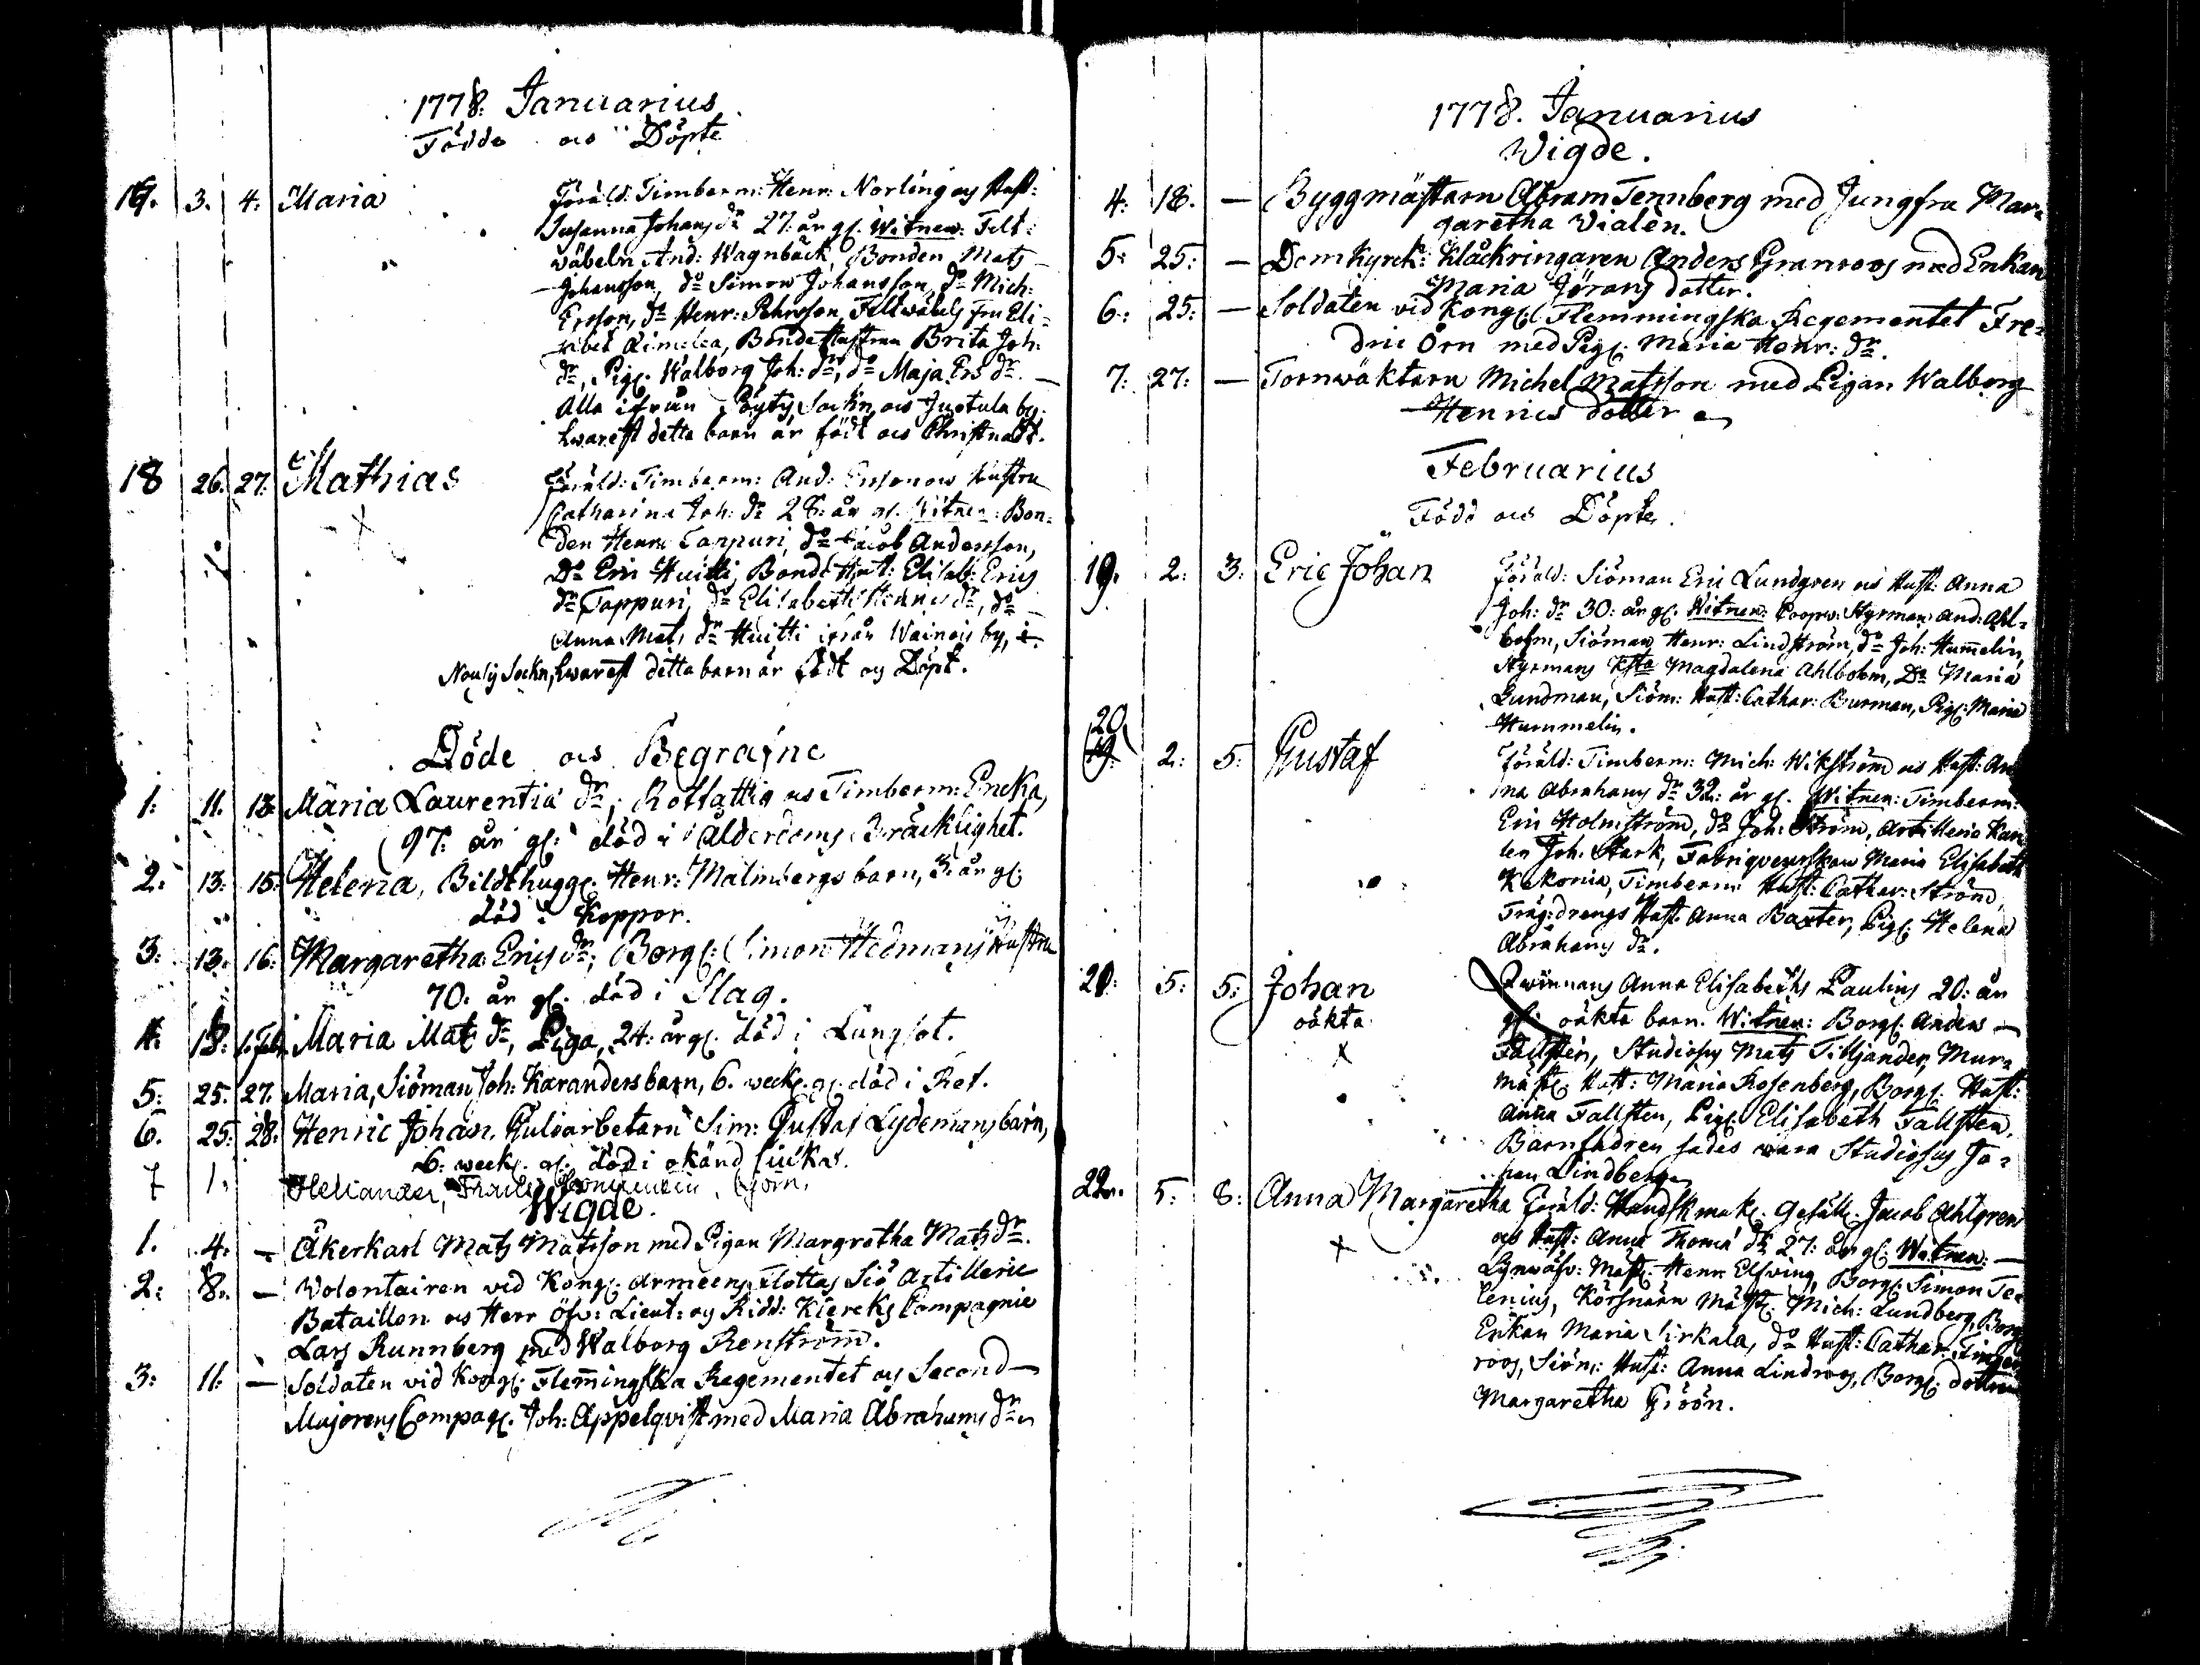 1778. Januarius
Födde och Döpte
3. 4. Maria Föräld: Timberm: Henr: Norling och Hust:
Susanna Johans dr 27. år gl. Witnen: Felt-
wäbeln And: Wagnbäck, Bonden Mats
Johansson, do Simon Johansson, do Mich:
Ersson, do Henr: Pehrsson, Feltwäbels fru Eli-
Bonde Hustrun Brita Joh:
dr, Pig. Walborg Joh: dr, do Maja Ers dr.
Alla ifrån Pöytis Sockn och by.
hwarest detta barn är född och Christnadt.
18 26. 27. Mathias Föräld: Timberm: And: Hustru
Catharina Joh: dr 28. år gl. Witnen: Bon-
den Henr: Tappuri, do Jacob Andersson,
Do Eric Huitti, Bond Hust: Elisab: Erics
dr Tappuri, do Elisabeth Henrics dr, do
Anna Mats dr Huitti ifrån by, i
Nousis Sockn, hwarest detta barn är född och Döpt.
Döde och Begrafne
1. 11. 13. Maria Laurentiæ dr, och Timberm: Encka,
97. år gl. död i Ålderdoms Bräcklighet.
2. 13. 15. Helena, Bildthugg. Henr: Malmbergs barn, 3. år gl.
död i Koppor.
3. 13. 16. Margaretha Erics dr, Borg. Simon Hedmans Hustru
70. år gl. död i Slag.
4. 18. 1. Feb. Maria Mats dr, Piga, 24. år gl. död i Lungsot.
5. 25. 27. Maria, Siöman Joh: Karanders barn, 6. weck. gl. död i Ref.
6. 25. 28. Henric Johan, Sim: Gustaf Lydemans barn,
6. weck. gl. död i okänd siuka.
7 1.
Wigde.
1. 4. — Åkerkarl Mats Matsson med Pigan Margretha Mats dr.
2. 8. — Volontairen vid Kongl. Armeens Flottas Siö Artillerie
Bataillon och Herr Öfv: Lieut: och Ridd: Klercks Compagnie
Lars Runnberg med Walborg Renström.
3. 11. — Soldaten vid Kongl. Flemmingska Regementet och Second
Majorens Compag. Joh: Appelqvist med Maria Abrahams dr
1778. Januarius
Wigde.
4. 18. — Byggmästarn Abram Tennberg med Jungfru Mar-
garetha Vialén.
5. 25. — Domkyrck: Klåckringaren Anders Granroos med Enkan
Maria Jörans dotter.
6. 25. — Soldaten vid Kongl. Flemmingska Regementet Fre-
dric Örn med Pig. Maria Henr: dr.
7. 27. — Tornwäktarn Michel Matsson med Pigan Walborg
Henrics dotter
Februarius
Född och Döpte.
19. 2. 3. Eric Johan Föräld: Siöman Eric Lundgren och Hust: Anna
Joh: dr 30. år gl. Witnen: Styrman And: Ahl-
bohm, Siöman Henr: Lindström, do Joh: Hummelin,
Styrmans Magdalena Ahlbohm, Do Maria
Gundman, Siöm: Hust: Cathar: Burman, Pig. Maria
Hummelin.
20 19. 2. 5. Gustaf Föräld: Timberm: Mich: Wikström och Hust: An
na Abrahams dr 32. år gl. Witnen: Timberm:
Eric Holmström, do Joh: Ström, Artillerie
Joh. Stark, Maria Elisabeth
Timberm: Hust: Cathar: Ström,
Träg: drengs Hust: Anna Baxter, Pig. Helena
Abrahams dr.
21. 5. 5. Johan Qwinnans Anna Elisabeths Paulins 20. år
oäkta gl. oäkta barn. Witnen: Borg. Anders
Fallsten, Studiosus Mats Tilljander, Mur-
mäst. Hust: Maria Rosenberg, Borg. Hust:
Anna Fallsten, Pig. Elisabeth Fallsten.
Barnfadren sades wara Studiosus Jo-
han Lindberg
22. 5. 8. Anna Margaretha Föräld: Handskmak. Gesäll. Jacob Ahlgren
och Hust: Anna Thomæ dr 27. år gl. Witnen:
Mäst. Henr: Elfwing, Borg. Simon Te-
lenius, Körsnärn Mäst. Mich: Lundberg, Borg
Enkan Maria Sirkala, do Hust: Cathar:
roos, Siöm: Hust: Anna Lindroos, Borg. dottren
Margaretha Gröön.